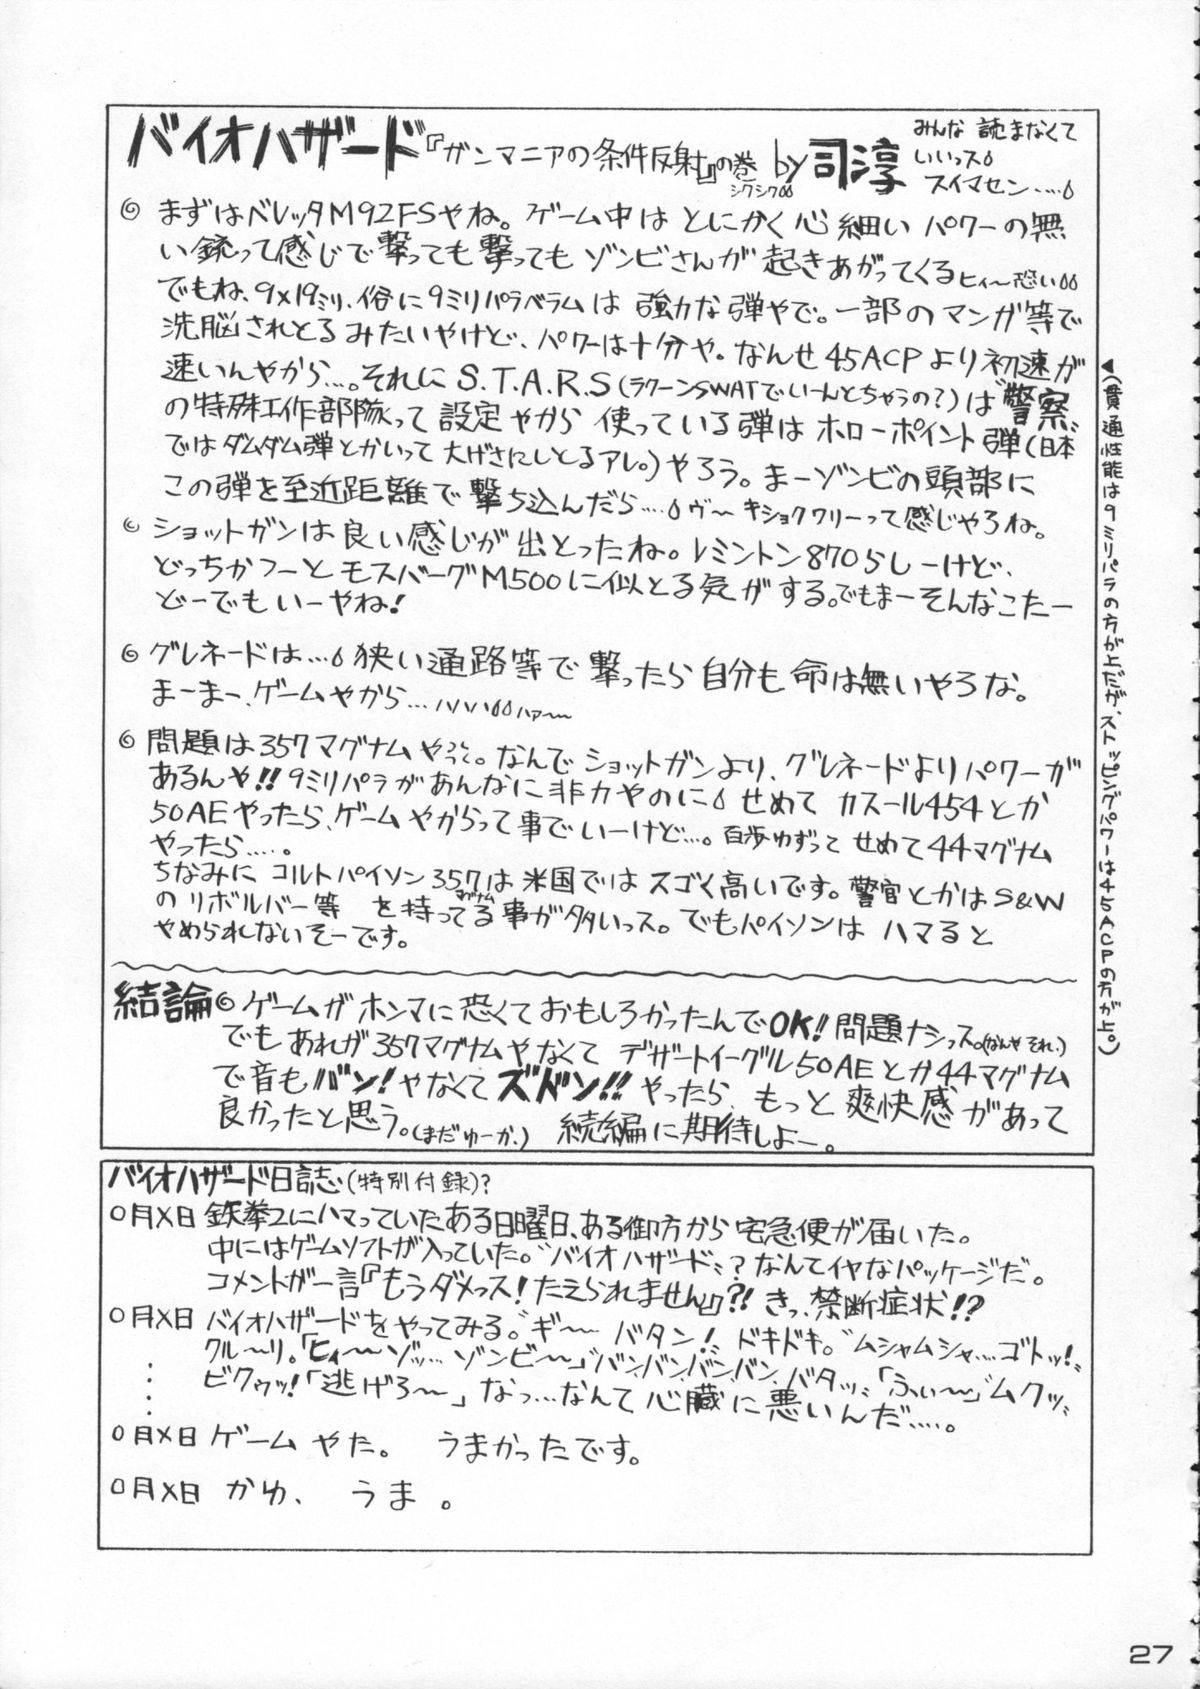 バイオハザード『ガンマニアの条件反射』の巻 by 司淳
シクシク
みんな 読まなくて
いいっス
スイマセン‥‥
◎ まずはベレッタM92FSやね。ゲーム中は とにかく心細い パワーの無
い銃って感じで撃っても撃っても ゾンビさんが 起きあがってくるヒィ〜恐い
でもね、9×19ミリ、俗に9ミリパラベラムは 強力な弾やで。一部のマンガ等で
洗脳されとるみたいやけど、パワーは十分や。なんせ 45ACPより初速が
速いんやから…。それに S.T.A.R.S(ラクーンSWATでいーんとちゃうの?)は"警察"
の特殊工作部隊って 設定やから 使っている弾は ホローポイント弾(日本
ではダムダム弾とかいって 大げさにしとるアレ。)やろう。まーゾンビの頭部に
この弾を至近距離で 撃ち込んだら‥‥ヴ〜 キショクワリーって感じやろね。
◎ ショットガンは良い感じが出とったね。レミントン870らしーけど、
どっちかつーと モスバーグM500に似とる気がする。でもまーそんなこたー
どーでもいーやね!
◎ グレネードは…狭い通路等で 撃ったら 自分も 命は無いやろな。
まーまー、ゲームやから…ハハハハァ〜
◎ 問題は357マグナムやっっ。なんで ショットガンより、グレネードよりパワーが
あるんや!! 9ミリパラがあんなに 非力やのに せめて カスール454とか
50AEやったら、ゲームやからって事でいーけど…。百歩ゆずって せめて44マグナム
やったら‥‥。
ちなみに コルトパイソン357は 米国では スゴく高いです。警官とかはS&W
マグナム
のリボルバー等 を持ってる事が多いっス。でもパイソンは ハマると
やめられないそーです。
▲(貫通性能は9ミリパラの方が上だが、ストッピングパワーは45ACPの方が上。)
結論◎ ゲームがホンマに恐くて おもしろかったんでOK! 問題ナシっス。(なんや それ、)
でも あれが 357マグナムやなくて デザートイーグル50AEとか44マグナム
で音も バン! やなくて ズドン!! やったら、もっと 爽快感があって
良かったと思う。(まだゆーか、) 続編に期待しよー。
バイオハザード日誌(特別付録)?
0月X日 鉄拳2にハマっていたある日曜日、ある御方から 宅急便が届いた。
中にはゲームソフトが入っていた。"バイオハザード"? なんてイヤなパッケージだ。
コメントが一言『もうダメっス! たえられません』?! きっ、禁断症状!?
0月X日 バイオハザードをやってみる。"ギ〜 バタン!" ドキドキ。"ムシャムシャ‥‥ゴトッ!"
クル〜リ。「ヒィ〜ゾッ…ゾンビ〜」"バン、バンバンバン、バタッ"「ふぃ〜」"ムクッ"
ビクゥッ!「逃げろ〜」 なっ…なんて 心臓に 悪いんだ‥‥。
0月X日 ゲーム やた。 うまかったです。
0月X日 かゆ、 うま 。
27